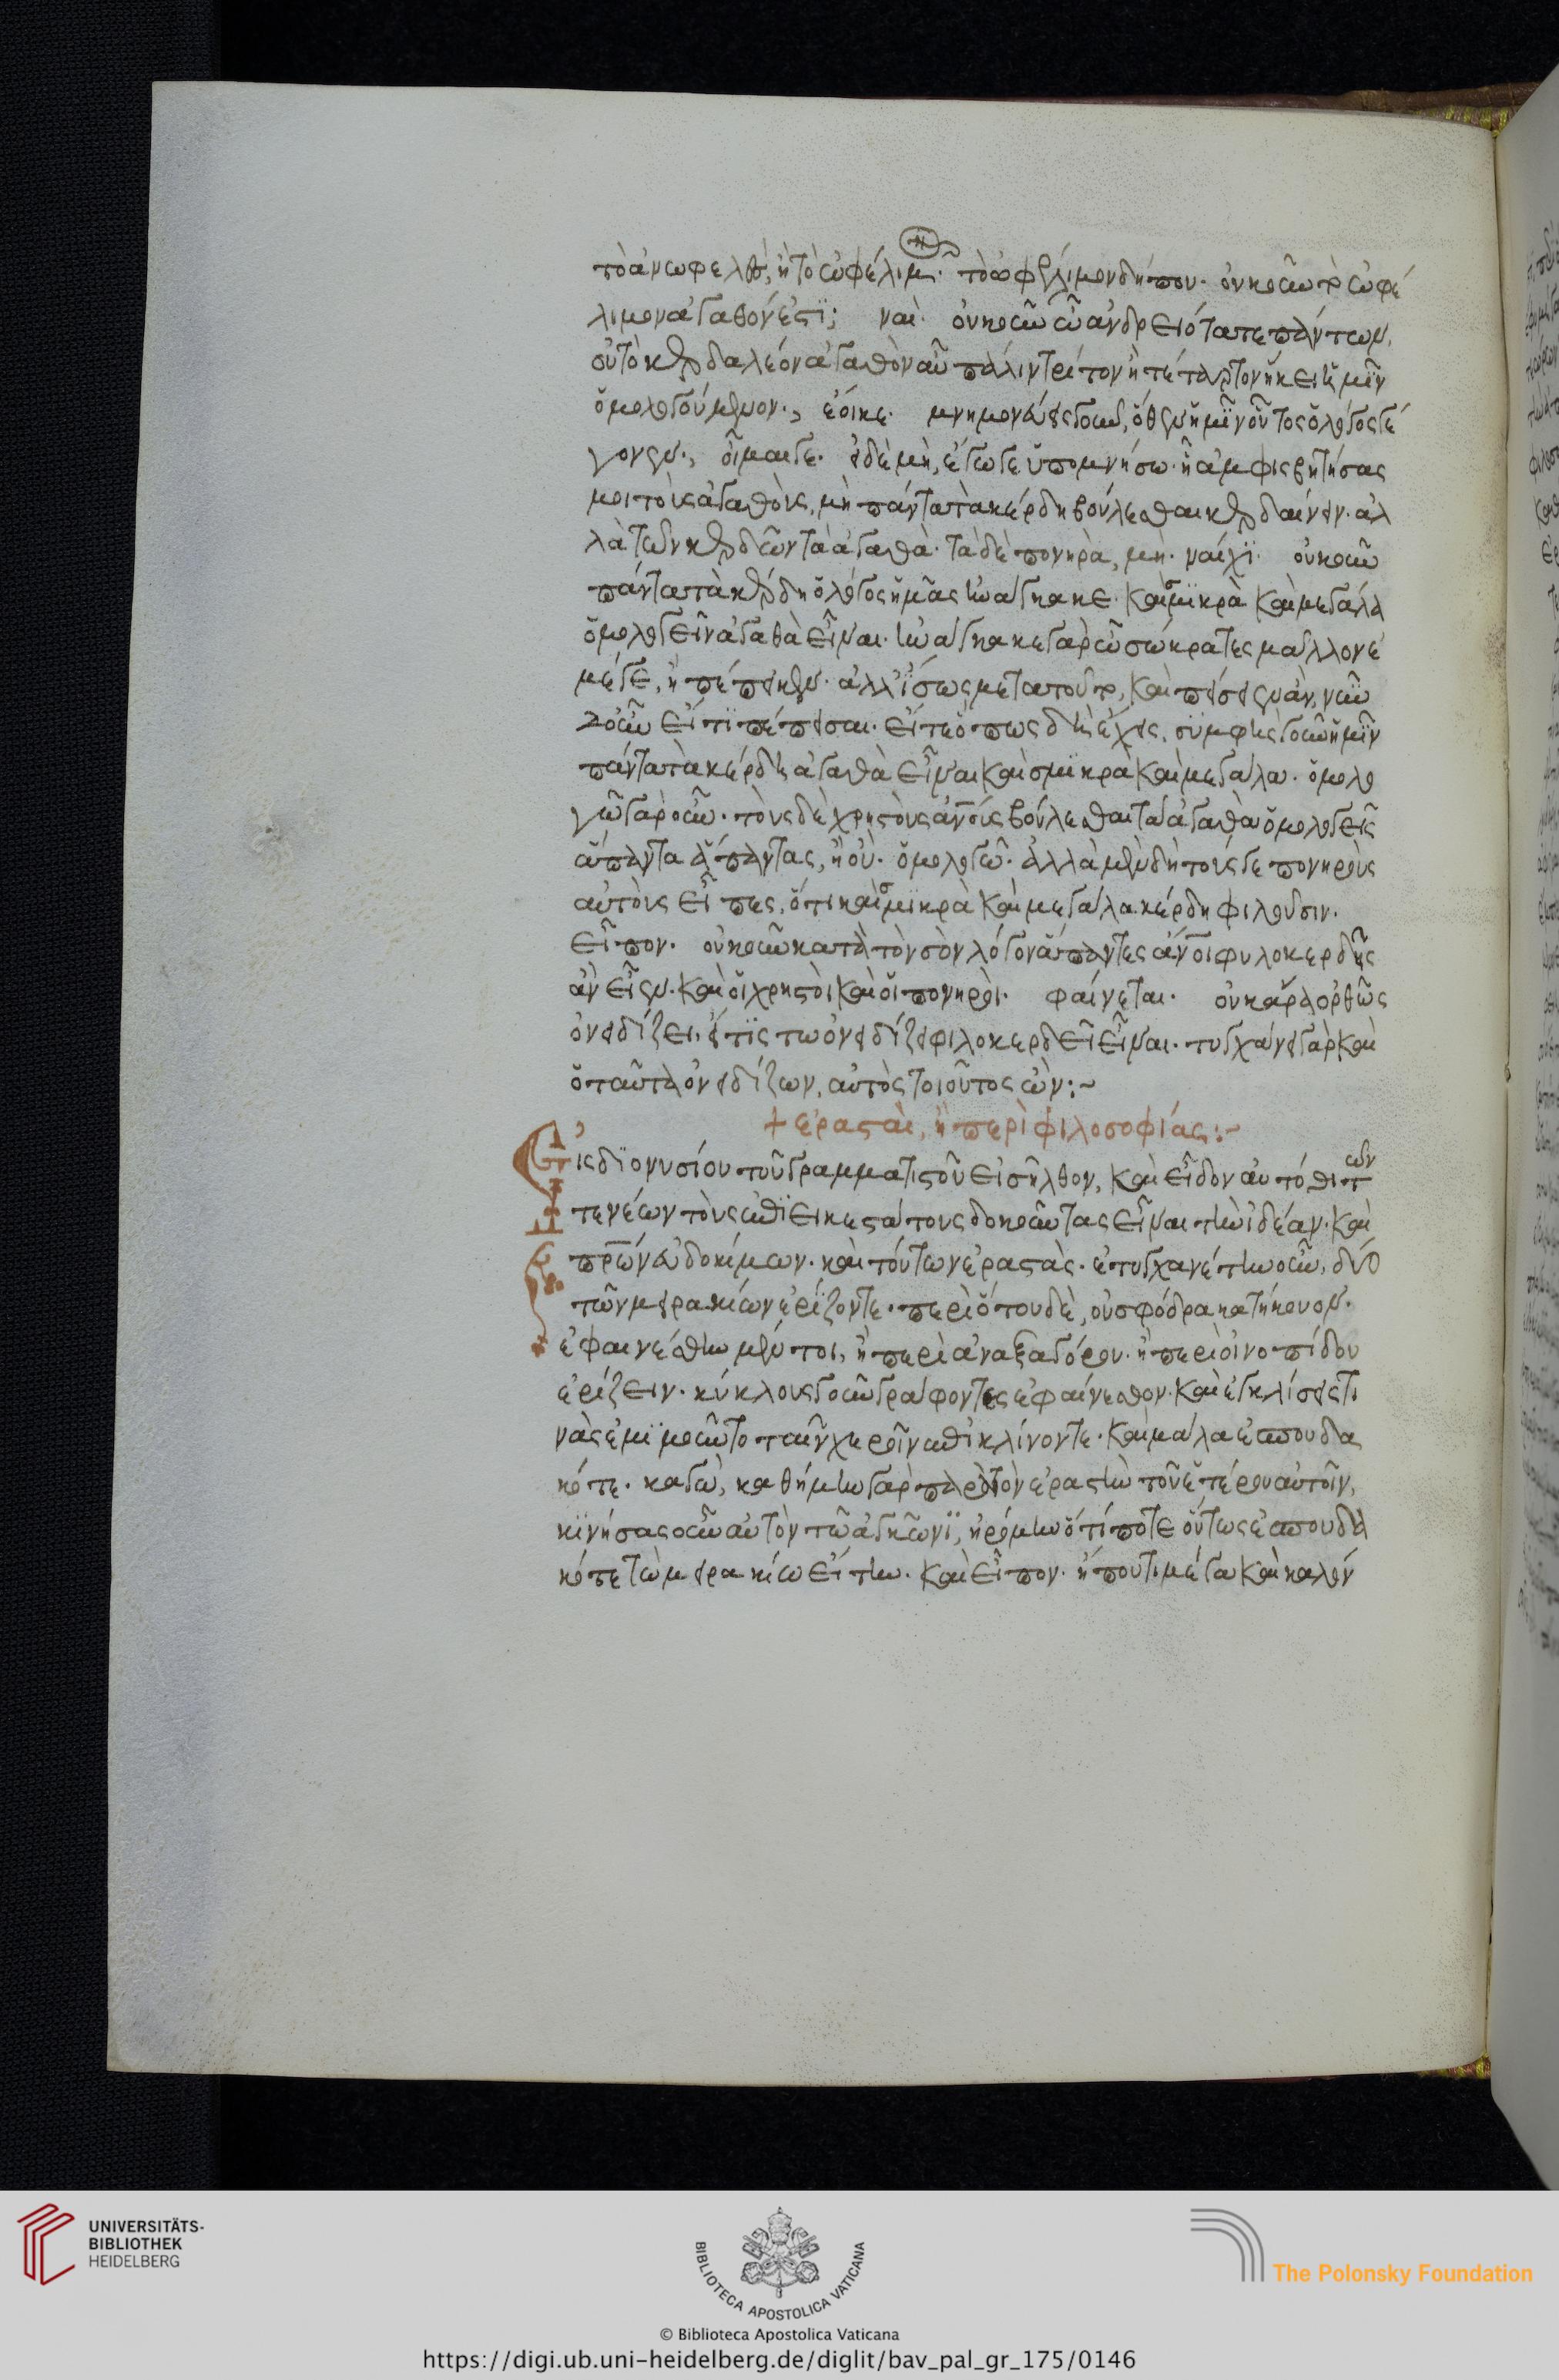 τὸ ἀνωφελὲς, ἢ τὸ ὠφέλιμον· τὸ ὠφέλιμον δήπου· οὐκοῦν τὸ ὠφέ
λιμον ἀγαθόν ἐστι; ναί· οὐκοῦν ὦ ἀνδρειότατε πάντων,
οὐ τὸ κερδαλέον ἀγαθὸν αὖ πάλιν τρίτον ἢ τέταρτον ἥκει ἡμῖν
ὁμολογούμενον·, ἔοικε· μνημονεύεις γοῦν, ὅθεν ἡμῖν οὗτος ὁ λόγος γέ
γονεν·, οἶμαί γε· εἰ δὲ μὴ, ἐγώ σε ὑπομνήσω· ἠμφισβήτησας
μοι τοὺς ἀγαθοὺς, μὴ πάντα τὰ κέρδη βούλεσθαι κερδαίνειν· ἀλ
λὰ τῶν κερδῶν τὰ ἀγαθὰ· τὰ δὲ πονηρὰ, μή· ναίχι· οὐκοῦν
πάντα τὰ κέρδη ὁ λόγος ἡμᾶς ἠνάγκακε· καὶ σμικρὰ καὶ μεγάλα
ὁμολογεῖν ἀγαθὰ εἶναι· ἠνάγκακε γὰρ ὦ σώκρατες μᾶλλον ἐ
μέ γε, ἢ πέπεικεν· ἀλλ' ἴσως μετὰ τοῦτο, καὶ πείσειεν ἄν, νῦν
δ' οὖν εἴτι πέπεισαι· εἴτε ὅπως δὴ ἔχεις, σύμφης γοῦν ἡμῖν
πάντα τὰ κέρδη ἀγαθὰ εἶναι καὶ σμικρὰ καὶ μεγάλα· ὁμολο
γῶ γὰρ οὖν· τοὺς δὲ χρηστοὺς ἀνους βούλεσθαι τὰ ἀγαθὰ ὁμολογεῖς
ἅπαντα ἅπαντας, ἢ οὔ· ὁμολογῶ· ἀλλὰ μὲν δὴ τούς γε πονηροὺς
αὐτὸς εἶπες, ὅτι καὶ σμικρὰ καὶ μεγάλα κέρδη φιλοῦσιν·
εἶπον· οὐκοῦν κατὰ τὸν σὸν λόγον ἅπαντες ἄνοι φιλοκερδεῖς
ἂν εἶεν· καὶ οἱ χρηστοὶ καὶ οἱ πονηροί· φαίνεται· οὐκ ἄρα ὀρθῶς
ὀνειδίζει, εἴ τίς τω ὀνειδίζει φιλοκερδεῖ εἶναι· τυγχάνει γὰρ καὶ
ὁ ταῦτα ὀνειδίζων, αὐτὸς τοιοῦτος ὤν:~
+ ἐρασταὶ, ἢ περὶ φιλοσοφίας:~
Εἰς διονυσίου τοῦ γραμματιστοῦ εἰσῆλθον, καὶ εἶδον αὐτόθι τῶν
τε νέων τοὺς ἐπιεικεστάτους δοκοῦντας εἶναι τὴν ἰδέαν· καὶ
πρων εὐδοκίμων· καὶ τούτων ἐραστάς· ἐτυγχανέτην οὖν, δύο
τῶν μειρακίων ἐρίζοντε· περὶ ὅτου δὲ, οὐ σφόδρα κατήκουον·
ἐφαινέσθην μέντοι, ἢ περὶ ἀναξαγόρου· ἢ περὶ οἰνοπίδου
ἐρίζειν· κύκλους γοῦν γράφοντες ἐφαίνεσθον· καὶ ἐγκλίσεις τι
νὰς ἐμιμοῦντο ταῖν χεροῖν ἐπικλίνοντε· καὶ μάλα ἐσπουδα
κότε· καγὼ, καθήμην γὰρ παρὰ τὸν ἐραστὴν τοῦ ἑτέρου αὐτοῖν,
κινήσας οὖν αὐτὸν τῶ ἀγκῶνι, ἠρόμην ὅτί ποτε οὕτως ἐσπουδα
κότε τὼ μειρακίω εἴτην· καὶ εἶπον· ἦπου τι μέγα καὶ καλόν
UNIVERSITÄTS-
BIBLIOTHEK
HEIDELBERG
BIBLIOTECA APOSTOLICA VATICANA
The Polonsky Foundation
© Biblioteca Apostolica Vaticana
https://digi.ub.uni-heidelberg.de/diglit/bav_pal_gr_175/0146